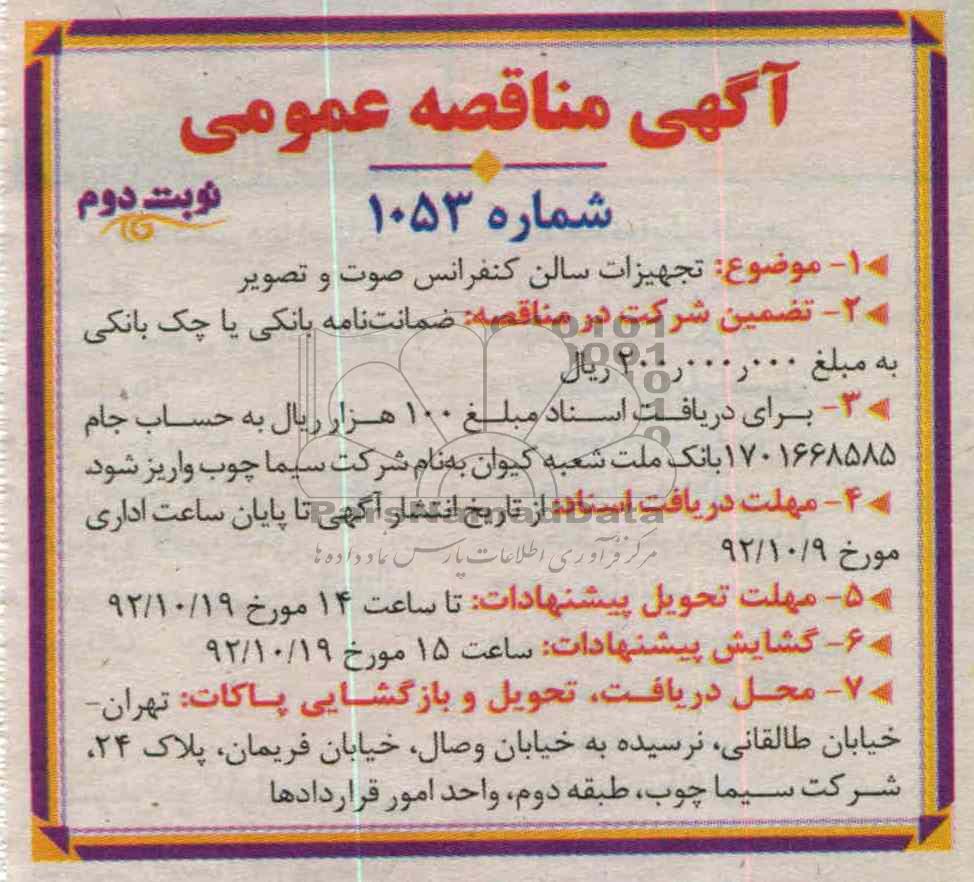 آگهی مناقصه عمومی
شماره ۱۰۵۳
نوبت دوم
۱- موضوع: تجهیزات سالن کنفرانس صوت و تصویر
۲- تضمین شرکت در مناقصه: ضمانت‌نامه بانکی یا چک بانکی
به مبلغ ۲۰۰٫۰۰۰٫۰۰۰ ریال
۳- برای دریافت اسناد مبلغ ۱۰۰ هزار ریال به حساب جام
۱۷۰۱۶۶۸۵۸۵ بانک ملت شعبه کیوان به‌نام شرکت سیما چوب واریز شود.
۴- مهلت دریافت اسناد: از تاریخ انتشار آگهی تا پایان ساعت اداری
مورخ ۹۲/۱۰/۹
۵- مهلت تحویل پیشنهادات: تا ساعت ۱۴ مورخ ۹۲/۱۰/۱۹
۶- گشایش پیشنهادات: ساعت ۱۵ مورخ ۹۲/۱۰/۱۹
۷- محل دریافت، تحویل و بازگشایی پاکات: تهران-
خیابان طالقانی، نرسیده به خیابان وصال، خیابان فریمان، پلاک ۲۴،
شرکت سیما چوب، طبقه دوم، واحد امور قراردادها
ParsNamadData
مرکز فرآوری اطلاعات پارس نماد داده ها